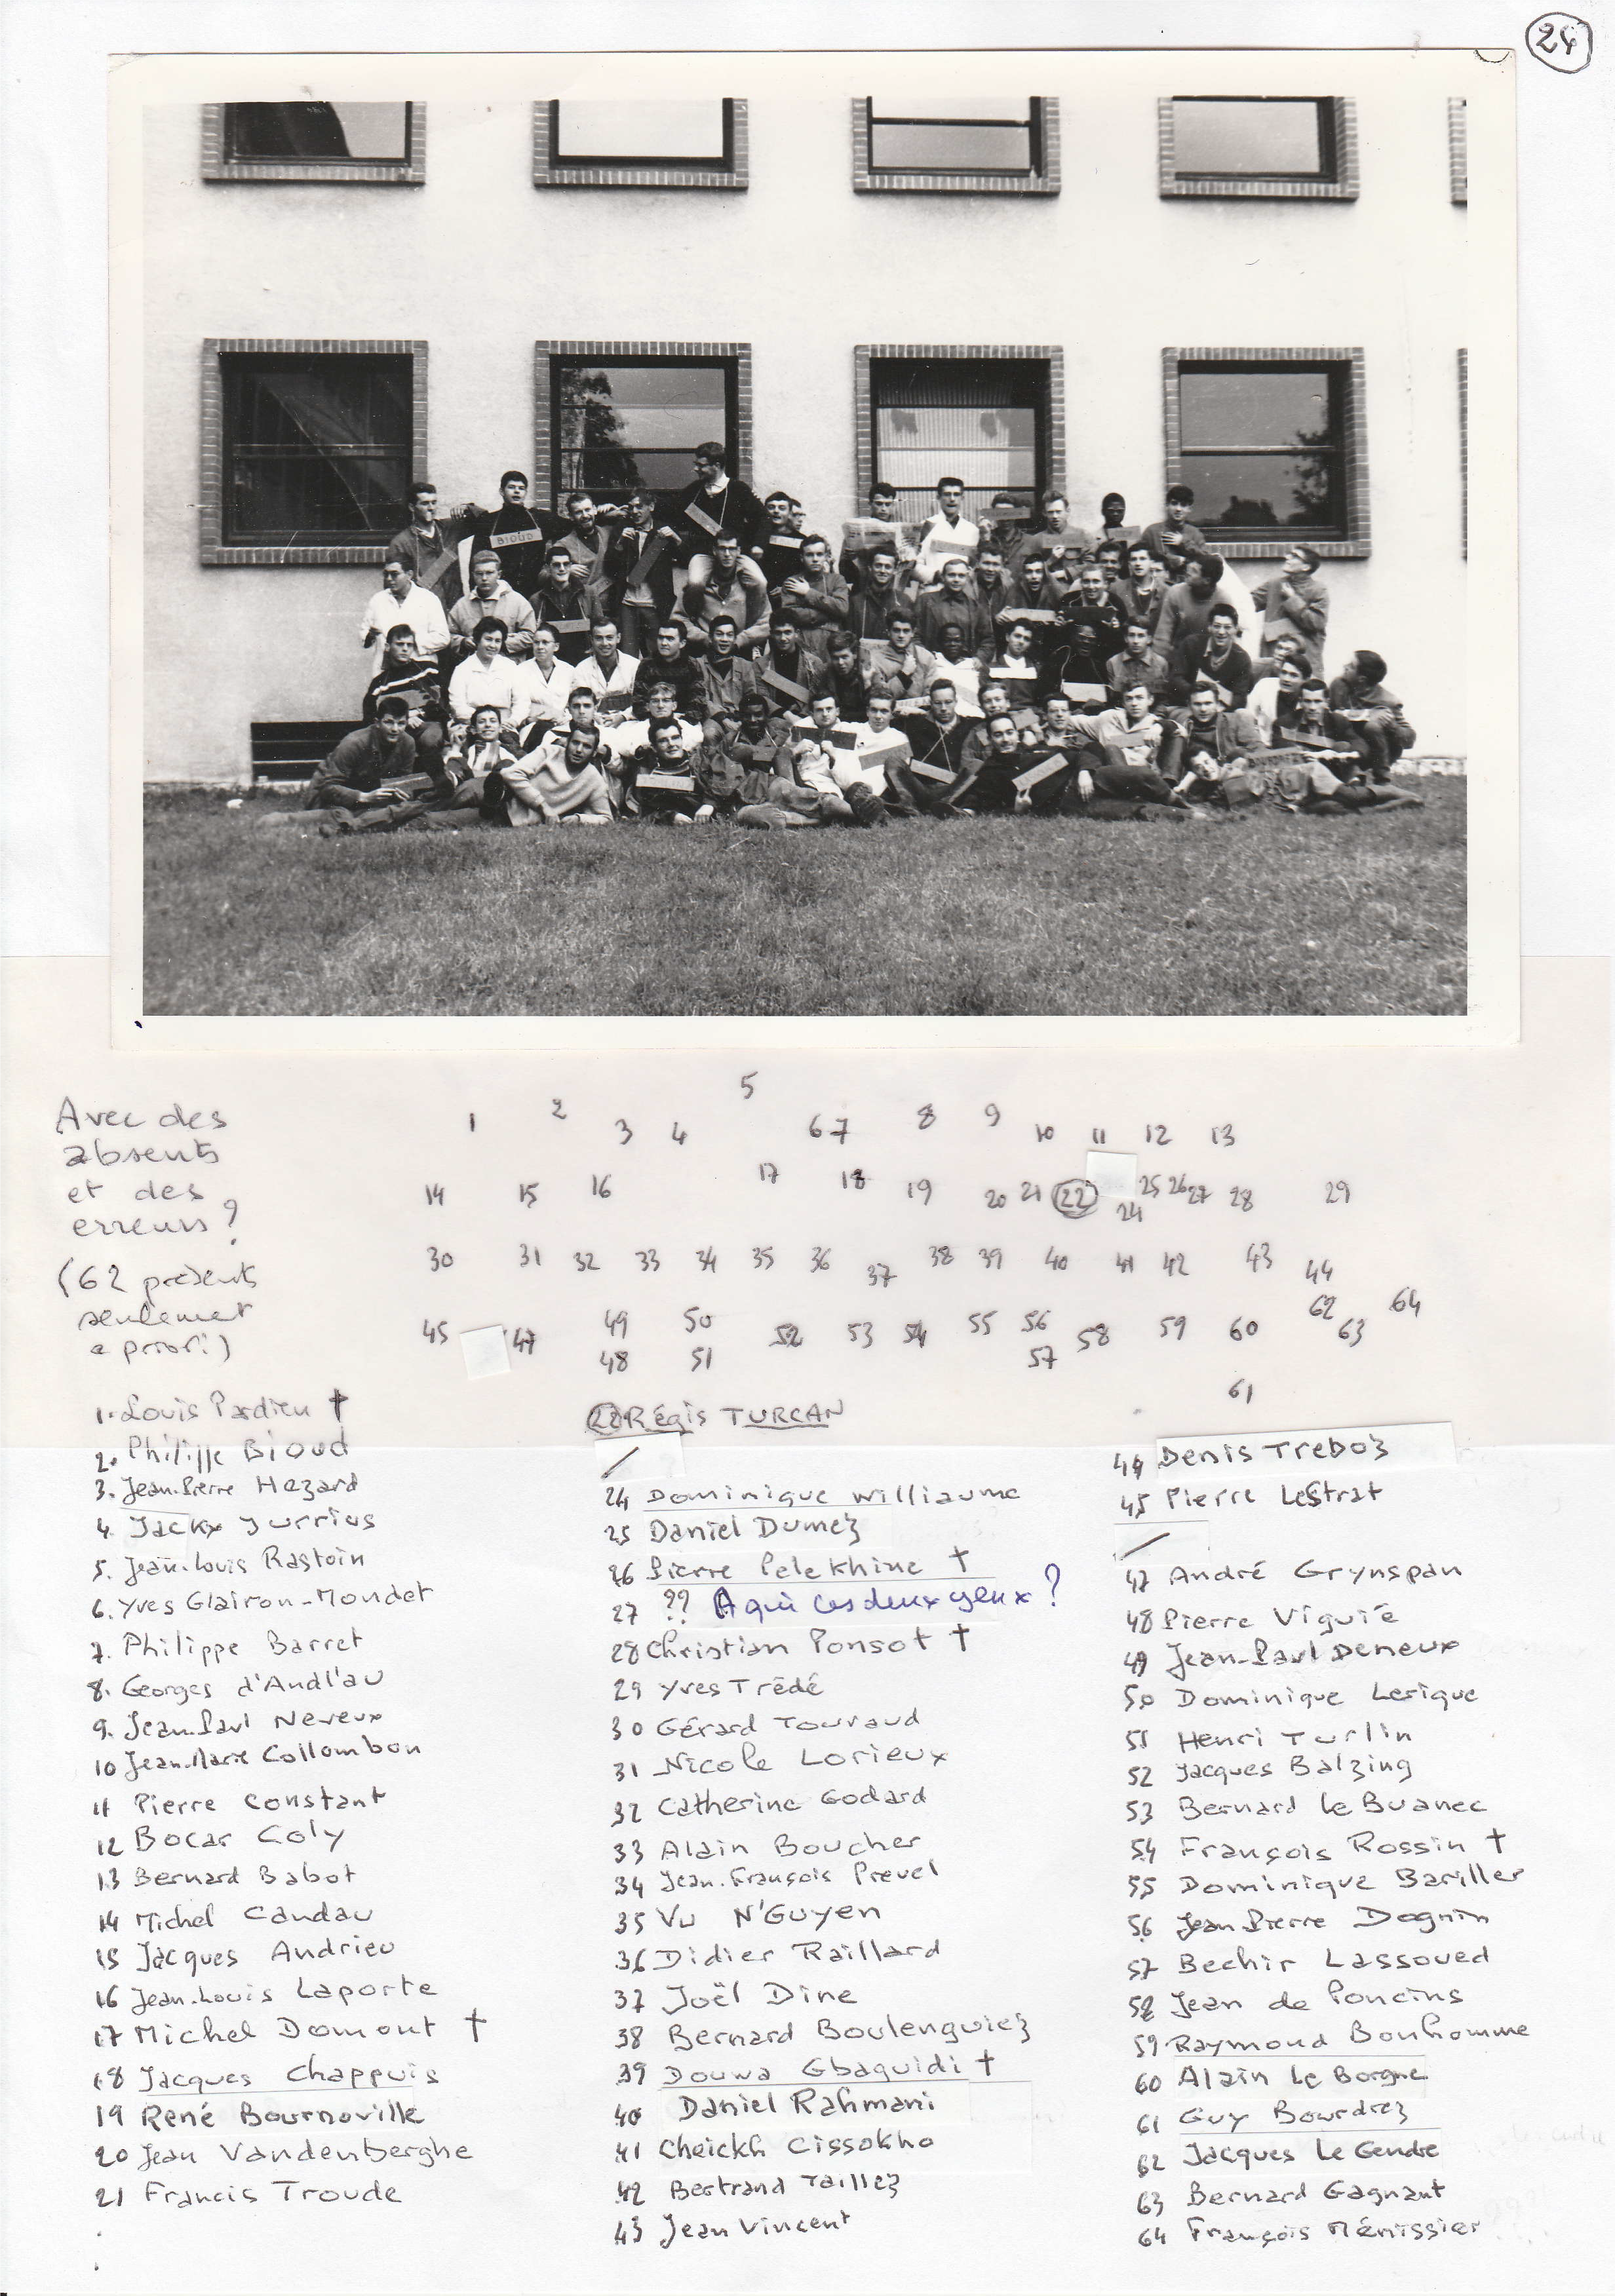 24
BIOUD
Avec des
absents
et des
erreurs?
(62 présents
seulement
a priori)
5
1 2 3 4 6 7 8 9 10 11 12 13
14 15 16 17 18 19 20 21 22 24 25 26 27 28 29
30 31 32 33 34 35 36 37 38 39 40 41 42 43 44
45 47 49 50 52 53 54 55 56 58 59 60 62 63 64
48 51 57
61
1. Louis Pardieu †
2. Philippe Bioud
3. Jean-Pierre Hezard
4. Jacky Jurrius
5. Jean-Louis Rastoin
6. Yves Glairon-Mondet
7. Philippe Barret
8. Georges d'Andlau
9. Jean-Paul Neveux
10 Jean-Marie Collombon
11 Pierre Constant
12 Bocar Coly
13 Bernard Babot
14 Michel Candau
15 Jacques Andrieu
16 Jean-Louis Laporte
17 Michel Domont †
18 Jacques Chappuis
19 René Bournoville
20 Jean Vandenberghe
21 Francis Troude
22 Régis TURCAN
/
24 Dominique Williaume
25 Daniel Dumez
26 Pierre Pelekhine †
27 ?? A qui ces deux yeux?
28 Christian Ponsot †
29 Yves Trédé
30 Gérard Touraud
31 Nicole Lorieux
32 Catherine Godard
33 Alain Boucher
34 Jean-François Prevel
35 Vu N'Guyen
36 Didier Raillard
37 Joël Dine
38 Bernard Boulenguiez
39 Douwa Gbaguidi †
40 Daniel Rahmani
41 Cheickh Cissokho
42 Bertrand Taillez
43 Jean Vincent
44 Denis Treboz
45 Pierre LeStrat
/
47 André Grynspan
48 Pierre Viguié
49 Jean-Paul Deneux
50 Dominique Lerique
51 Henri Turlin
52 Jacques Balzing
53 Bernard Le Buanec
54 François Rossin †
55 Dominique Bariller
56 Jean Pierre Dognin
57 Bechir Lassoued
58 Jean de Poncins
59 Raymond Bonhomme
60 Alain Le Borgne
61 Guy Bourdrez
62 Jacques Le Gendre
63 Bernard Gagnant
64 François Ménissier